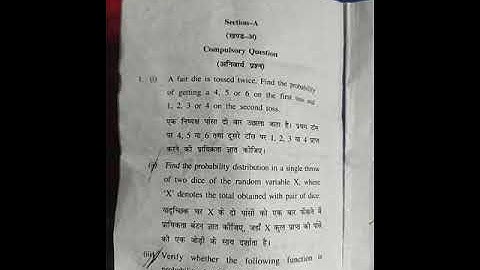 Section–A
(खण्ड–अ)
Compulsory Question
(अनिवार्य प्रश्न)
1. (i) A fair die is tossed twice. Find the probability
of getting a 4, 5 or 6 on the first toss and
1, 2, 3 or 4 on the second toss.
एक निष्पक्ष पांसा दो बार उछाला जाता है। प्रथम टॉस
पर 4, 5 या 6 तथा दूसरे टॉस पर 1, 2, 3 या 4 प्राप्त
करने की प्रायिकता ज्ञात कीजिए।
(ii) Find the probability distribution in a single throw
of two dice of the random variable X, where
'X' denotes the total obtained with pair of dice.
यादृच्छिक चर X के दो पांसों को एक बार फेंकने में
प्रायिकता बंटन ज्ञात कीजिए, जहाँ X कुल प्राप्त को पांसे
की एक जोड़ी के साथ दर्शाता है।
(iii) Verify whether the following function is